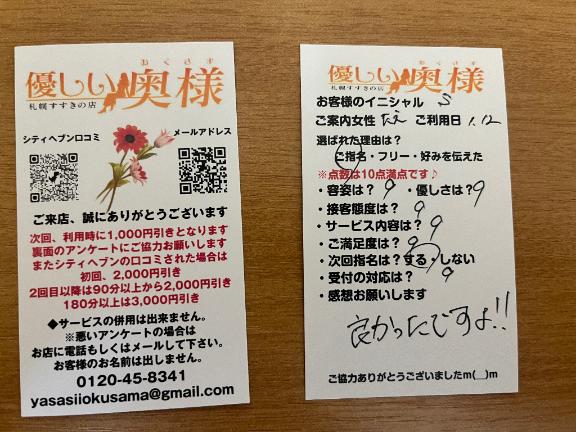 おくさま
優しい奥様
札幌すすきの店
シティヘブン口コミ
メールアドレス
ご来店、誠にありがとうございます
次回、利用時に1,000円引きとなります
裏面のアンケートにご協力お願いします
またシティヘブンの口コミされた場合は
初回、2,000円引き
2回目以降は90分以上から2,000円引き
180分以上は3,000円引き
◆サービスの併用は出来ません。
※悪いアンケートの場合は
お店に電話もしくはメールして下さい。
お客様のお名前は出しません。
0120-45-8341
yasasiiokusama@gmail.com
おくさま
優しい奥様
札幌すすきの店
お客様のイニシャル S
ご案内女性 ご利用日 1.12
選ばれた理由は?
ご指名・フリー・好みを伝えた
※点数は10点満点です♪
・容姿は? 9 ・優しさは? 9
・接客態度は? 9
・サービス内容は? 9
・ご満足度は? 9
・次回指名は?する・しない
・受付の対応は? 9
・感想お願いします
良かったですよ!!
ご協力ありがとうございましたm(__)m